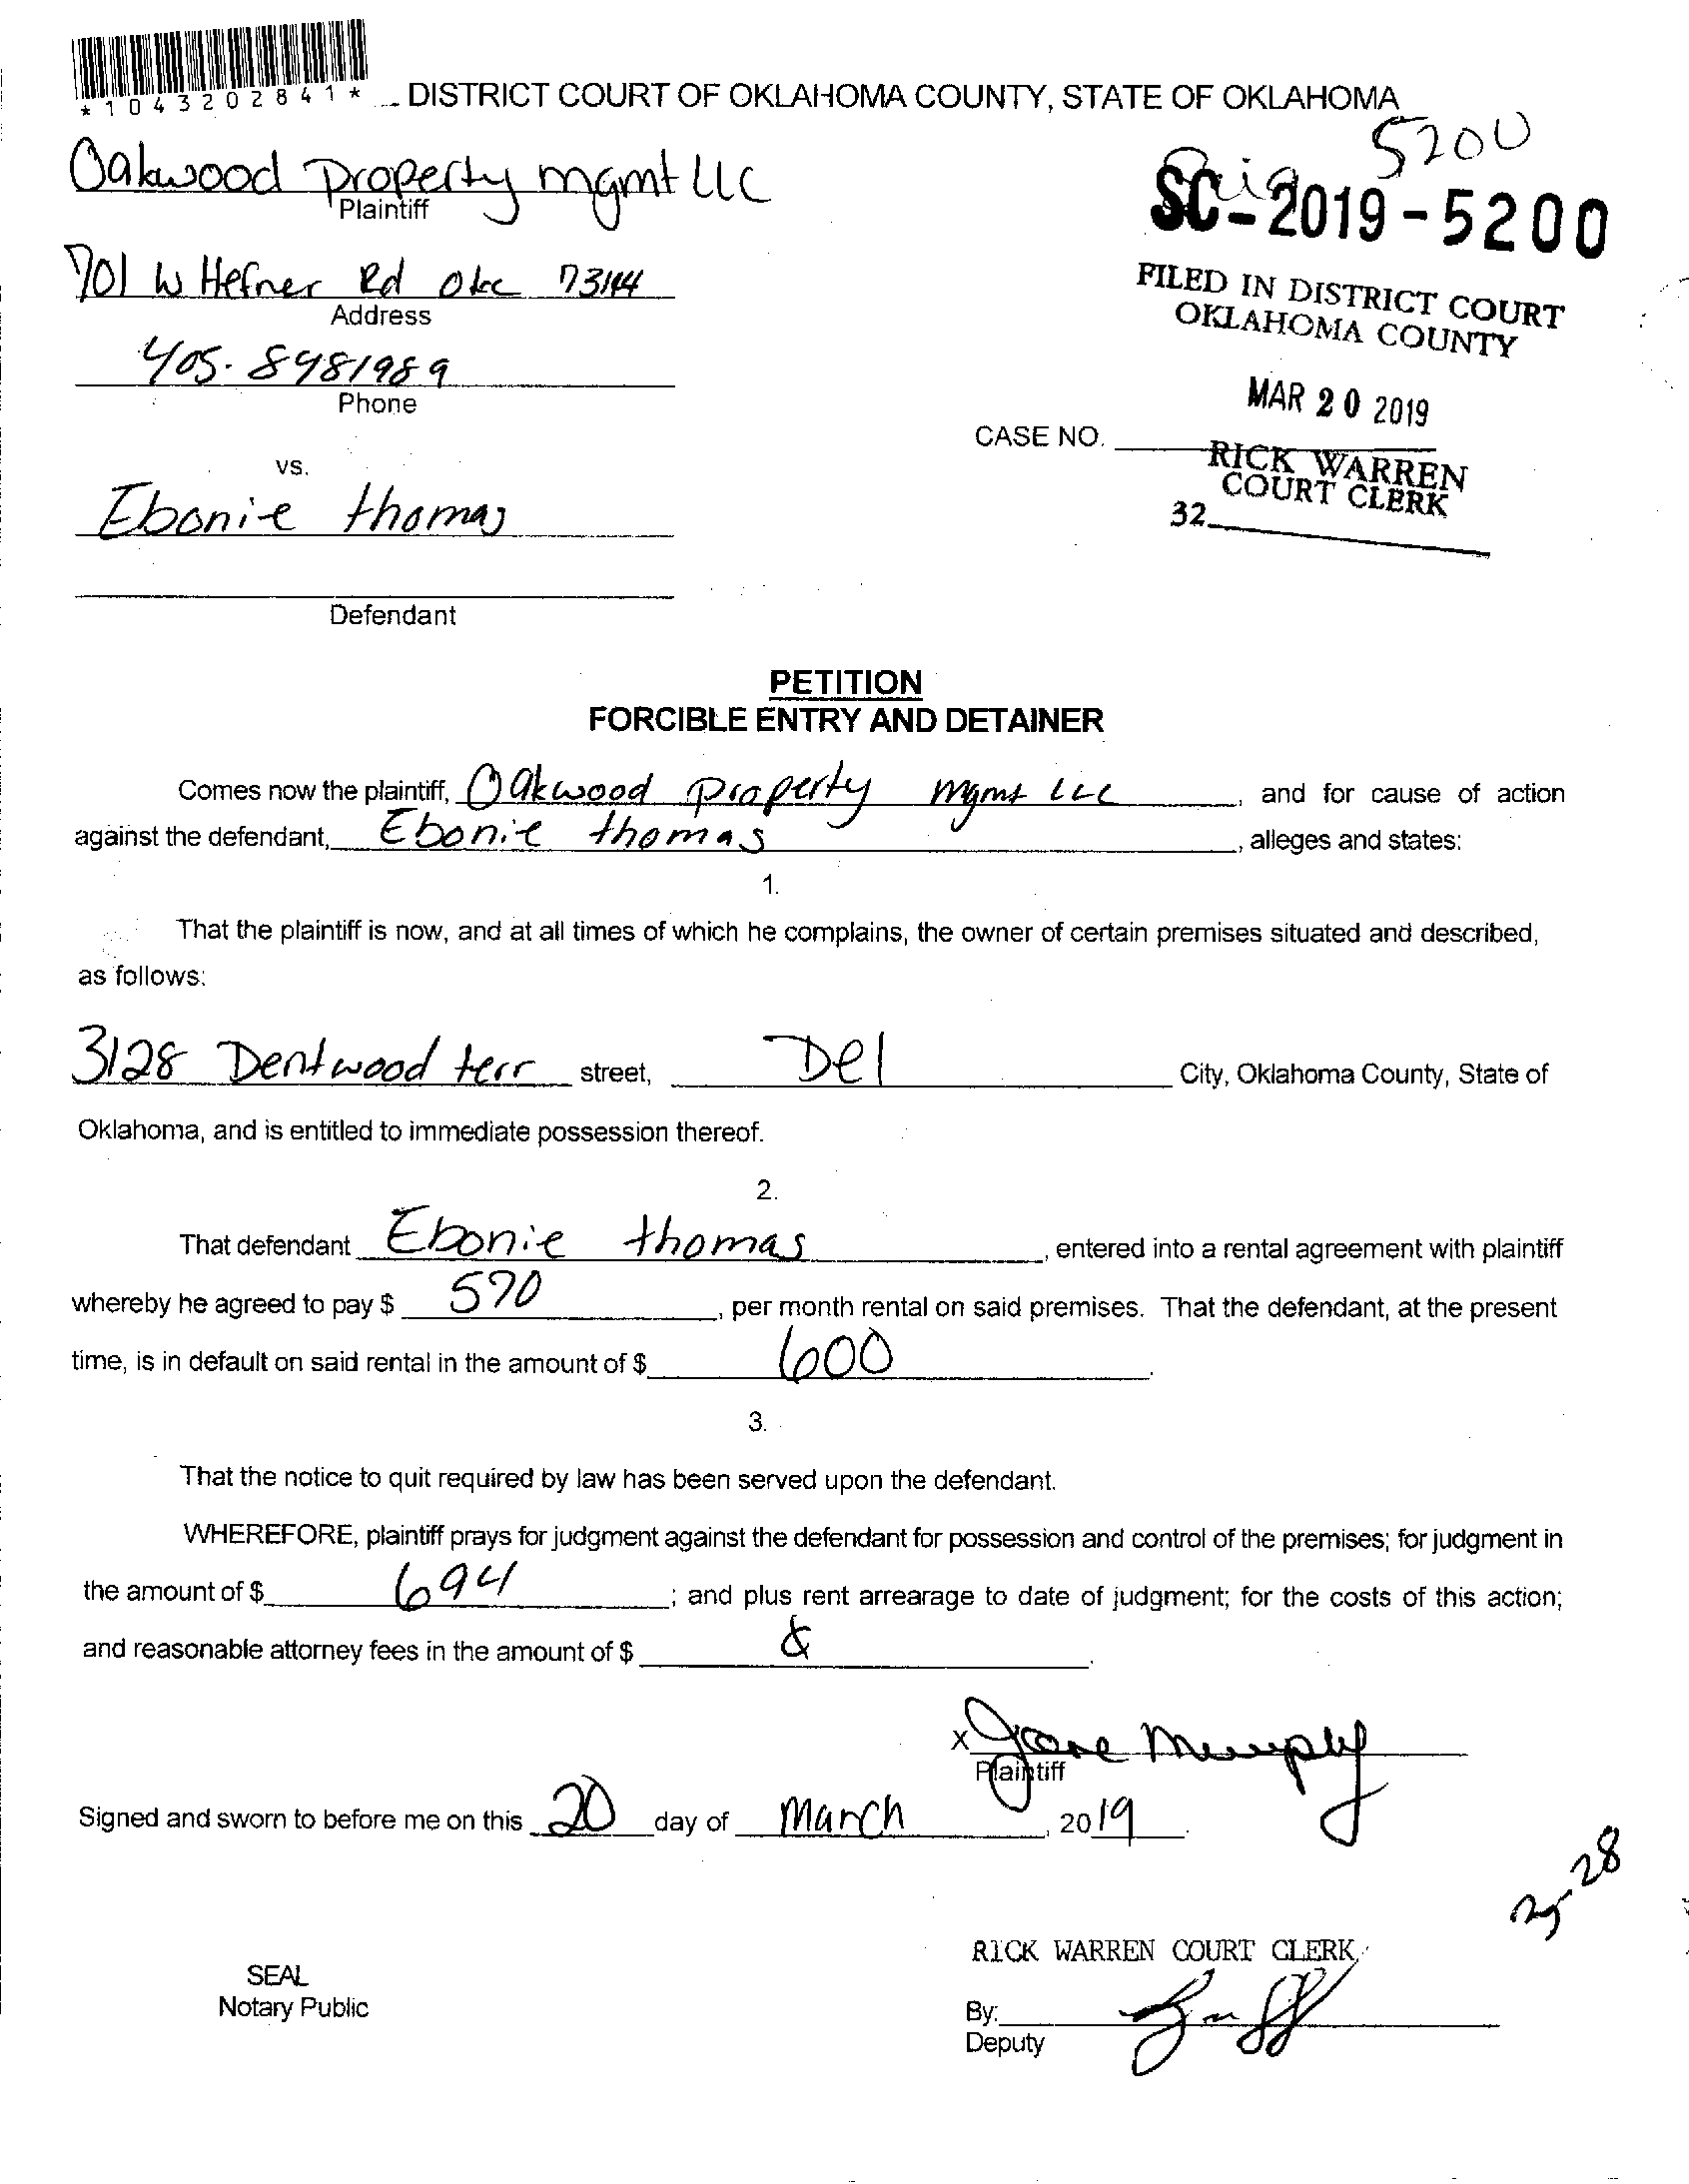 *1043202841*
DISTRICT COURT OF OKLAHOMA COUNTY, STATE OF OKLAHOMA
5200
Oakwood Property mgmt LLC
Plaintiff
SC-2019-5200
701 W Hefner Rd Okc 73144
Address
FILED IN DISTRICT COURT
OKLAHOMA COUNTY
405-8481989
Phone
MAR 20 2019
CASE NO.
RICK WARREN
COURT CLERK
32
vs.
Ebonie thomas
Defendant
PETITION
FORCIBLE ENTRY AND DETAINER
Comes now the plaintiff, Oakwood property mgmt LLC, and for cause of action
against the defendant, Ebonie thomas, alleges and states:
1.
That the plaintiff is now, and at all times of which he complains, the owner of certain premises situated and described,
as follows:
3128 Dentwood terr street, Del City, Oklahoma County, State of
Oklahoma, and is entitled to immediate possession thereof.
2.
That defendant Ebonie thomas, entered into a rental agreement with plaintiff
whereby he agreed to pay $ 570, per month rental on said premises. That the defendant, at the present
time, is in default on said rental in the amount of $ 600.
3.
That the notice to quit required by law has been served upon the defendant.
WHEREFORE, plaintiff prays for judgment against the defendant for possession and control of the premises; for judgment in
the amount of $ 694; and plus rent arrearage to date of judgment; for the costs of this action;
and reasonable attorney fees in the amount of $ .
x Jane Murphy
Plaintiff
Signed and sworn to before me on this 20 day of March, 2019.
RICK WARREN COURT CLERK
SEAL
Notary Public
By:
Deputy